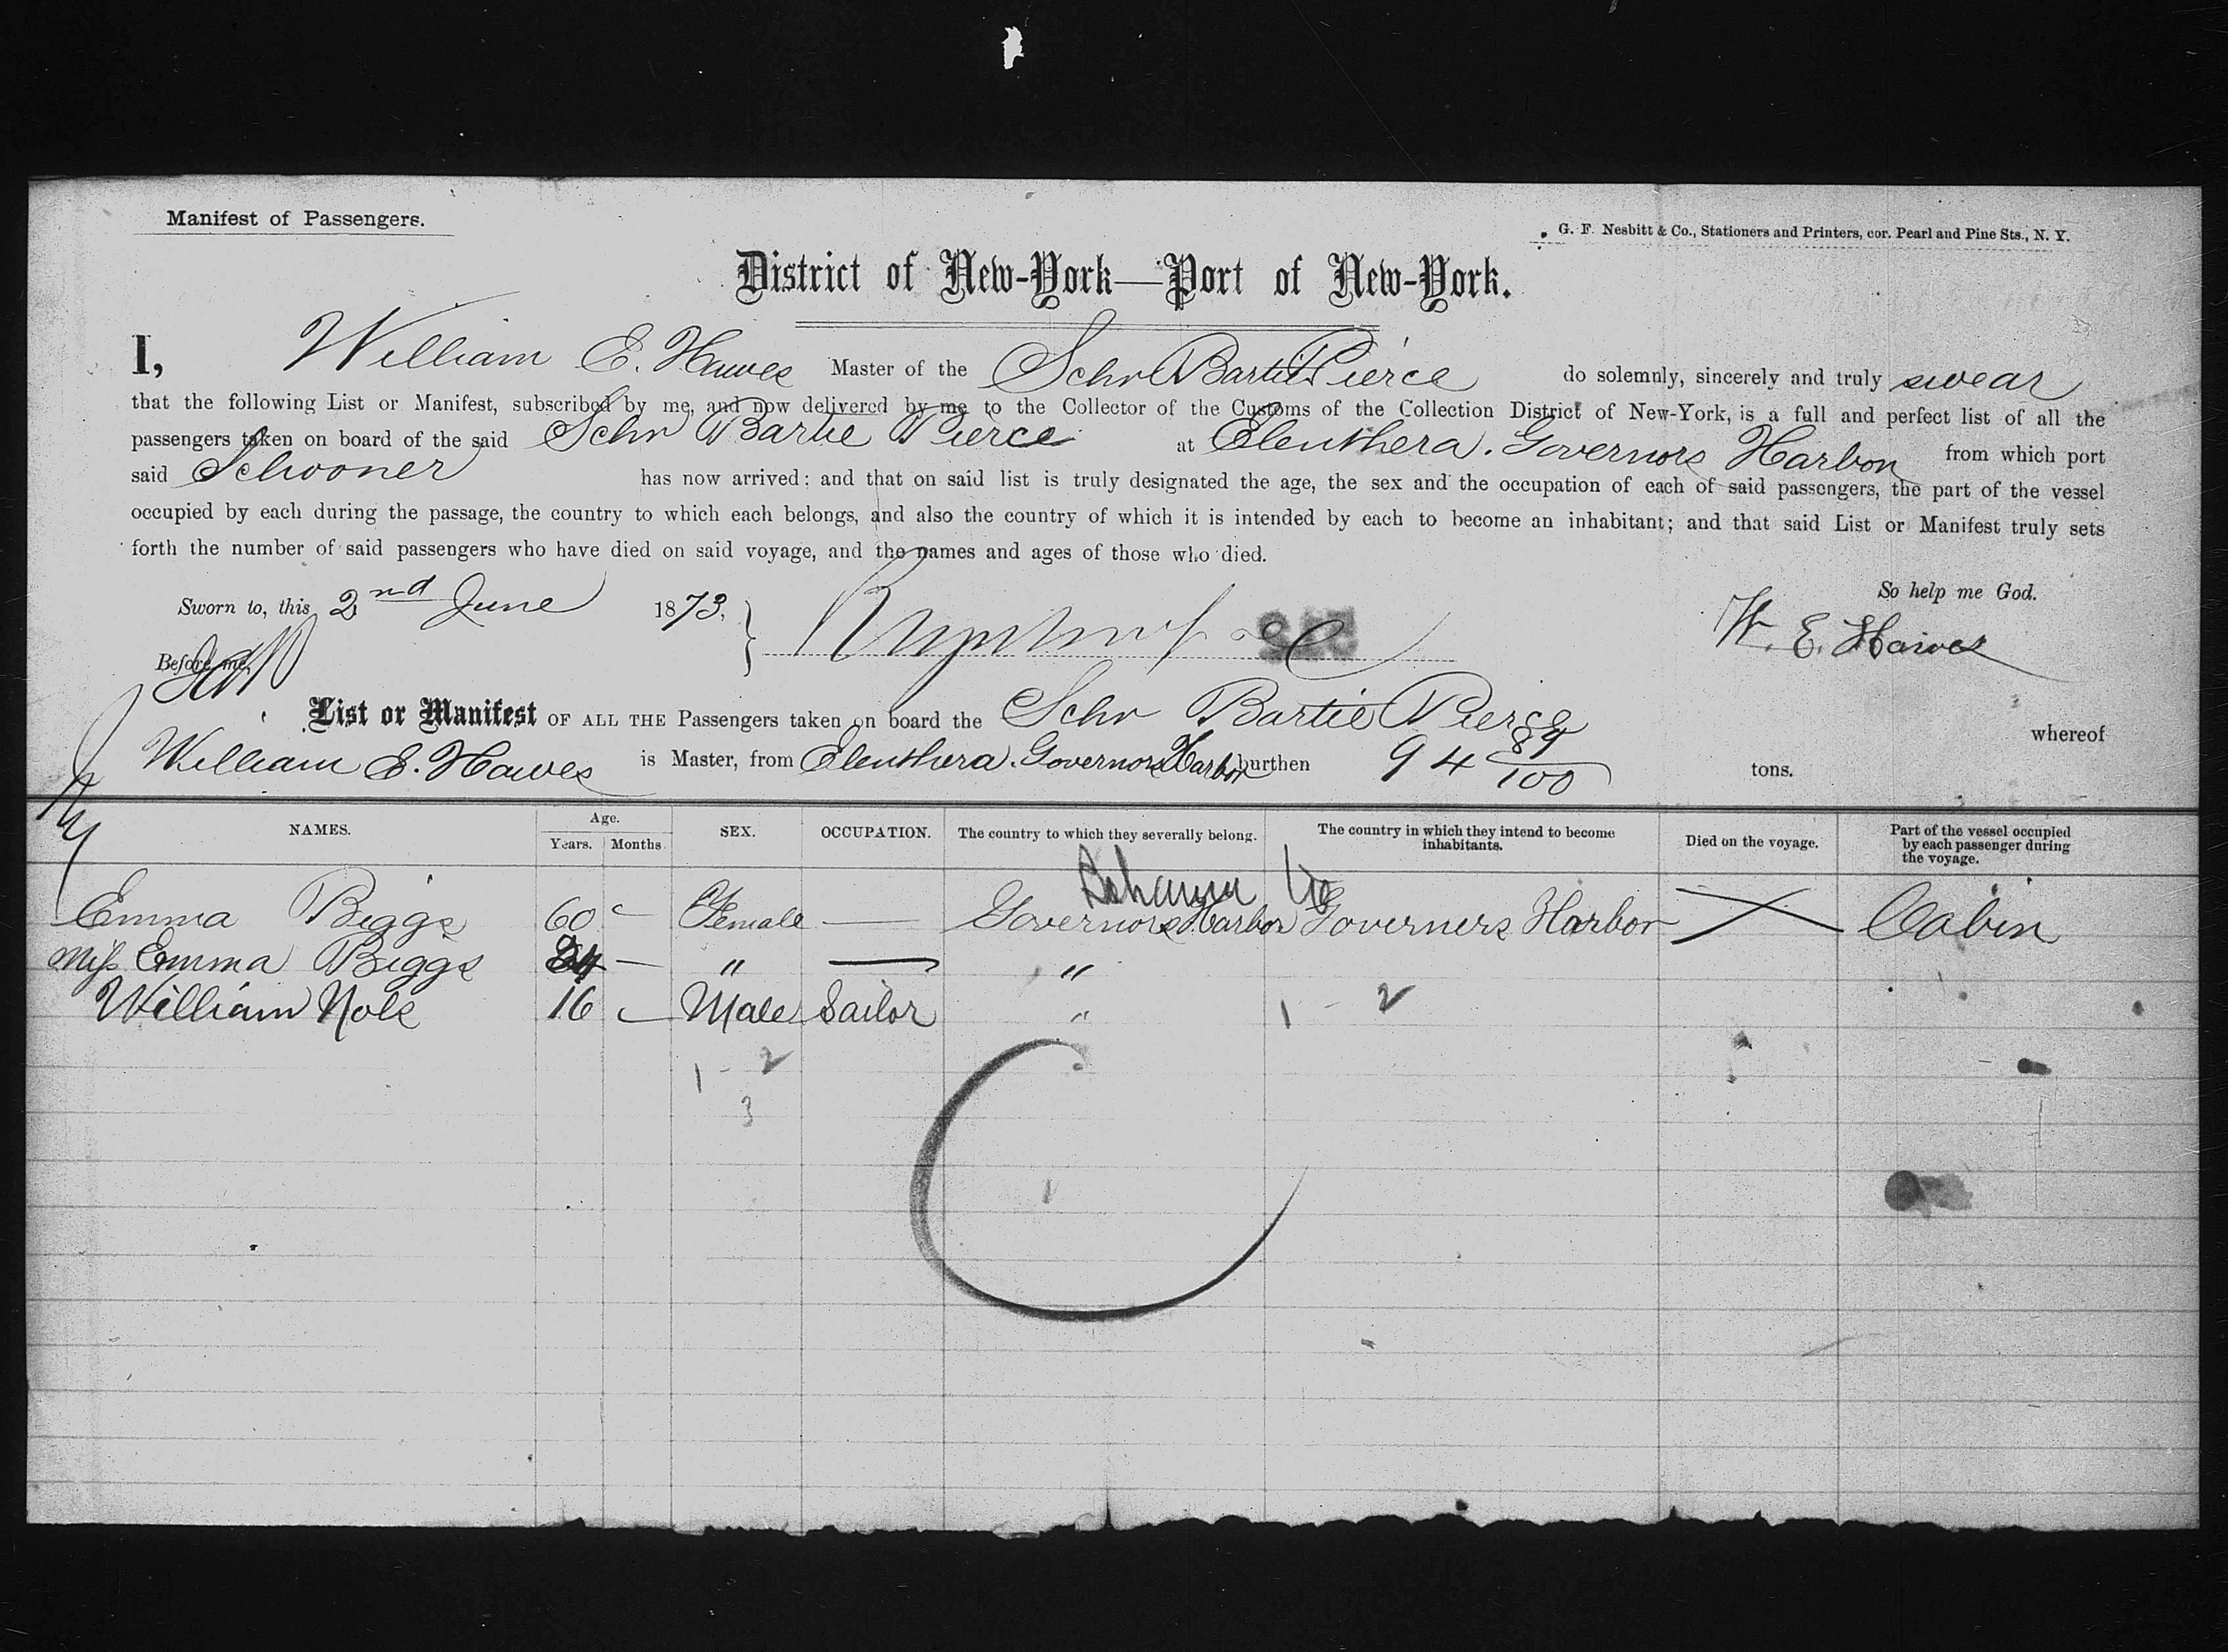 Manifest of Passengers.
G. F. Nesbitt & Co., Stationers and Printers, cor. Pearl and Pine Sts., N. Y.
District of New-York—Port of New-York.
I, William E. Hawes Master of the Schr Bartie Pierce do solemnly, sincerely and truly swear
that the following List or Manifest, subscribed by me, and now delivered by me to the Collector of the Customs of the Collection District of New-York, is a full and perfect list of all the
passengers taken on board of the said Schr Bartie Pierce at Eleuthera. Governors Harbor from which port
said Schooner has now arrived: and that on said list is truly designated the age, the sex and the occupation of each of said passengers, the part of the vessel
occupied by each during the passage, the country to which each belongs, and also the country of which it is intended by each to become an inhabitant; and that said List or Manifest truly sets
forth the number of said passengers who have died on said voyage, and the names and ages of those who died.
So help me God.
Sworn to, this 2nd June 1873.
W. E. Hawes
Before me,
List or Manifest OF ALL THE Passengers taken on board the Schr Bartie Pierce whereof
William E. Hawes is Master, from Eleuthera. Governors Harbor burthen 94 89/100 tons.
NAMES. Age. Years. Months. SEX. OCCUPATION. The country to which they severally belong. The country in which they intend to become inhabitants. Died on the voyage. Part of the vessel occupied by each passenger during the voyage.
Emma Biggs 60 — Female — Governors Harbor Governers Harbor Cabin
Miss Emma Biggs 24 — " — "
William Nole 16 — Male Sailor " 1 - 2
1 - 2
3